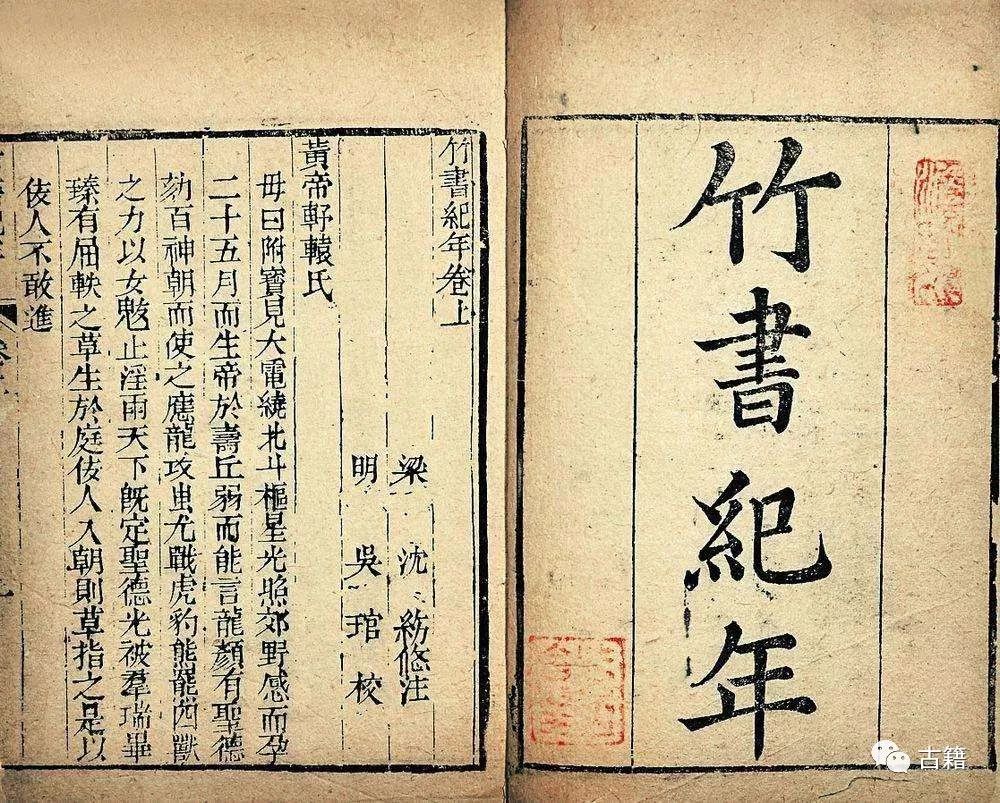 竹書紀年
竹書紀年卷上
梁 沈 注
明 吳 琯 校
黃帝軒轅氏
母曰附寶見大電繞北斗樞星光照郊野感而孕
二十五月而生帝於壽丘弱而能言龍顏有聖德
劾百神朝而使之應龍攻蚩尤戰虎豹熊羆四獸
之力以女魃止淫雨天下既定聖德光被羣瑞畢
臻有屈軼之草生於庭佞人入朝則草指之是以
佞人不敢進
古籍